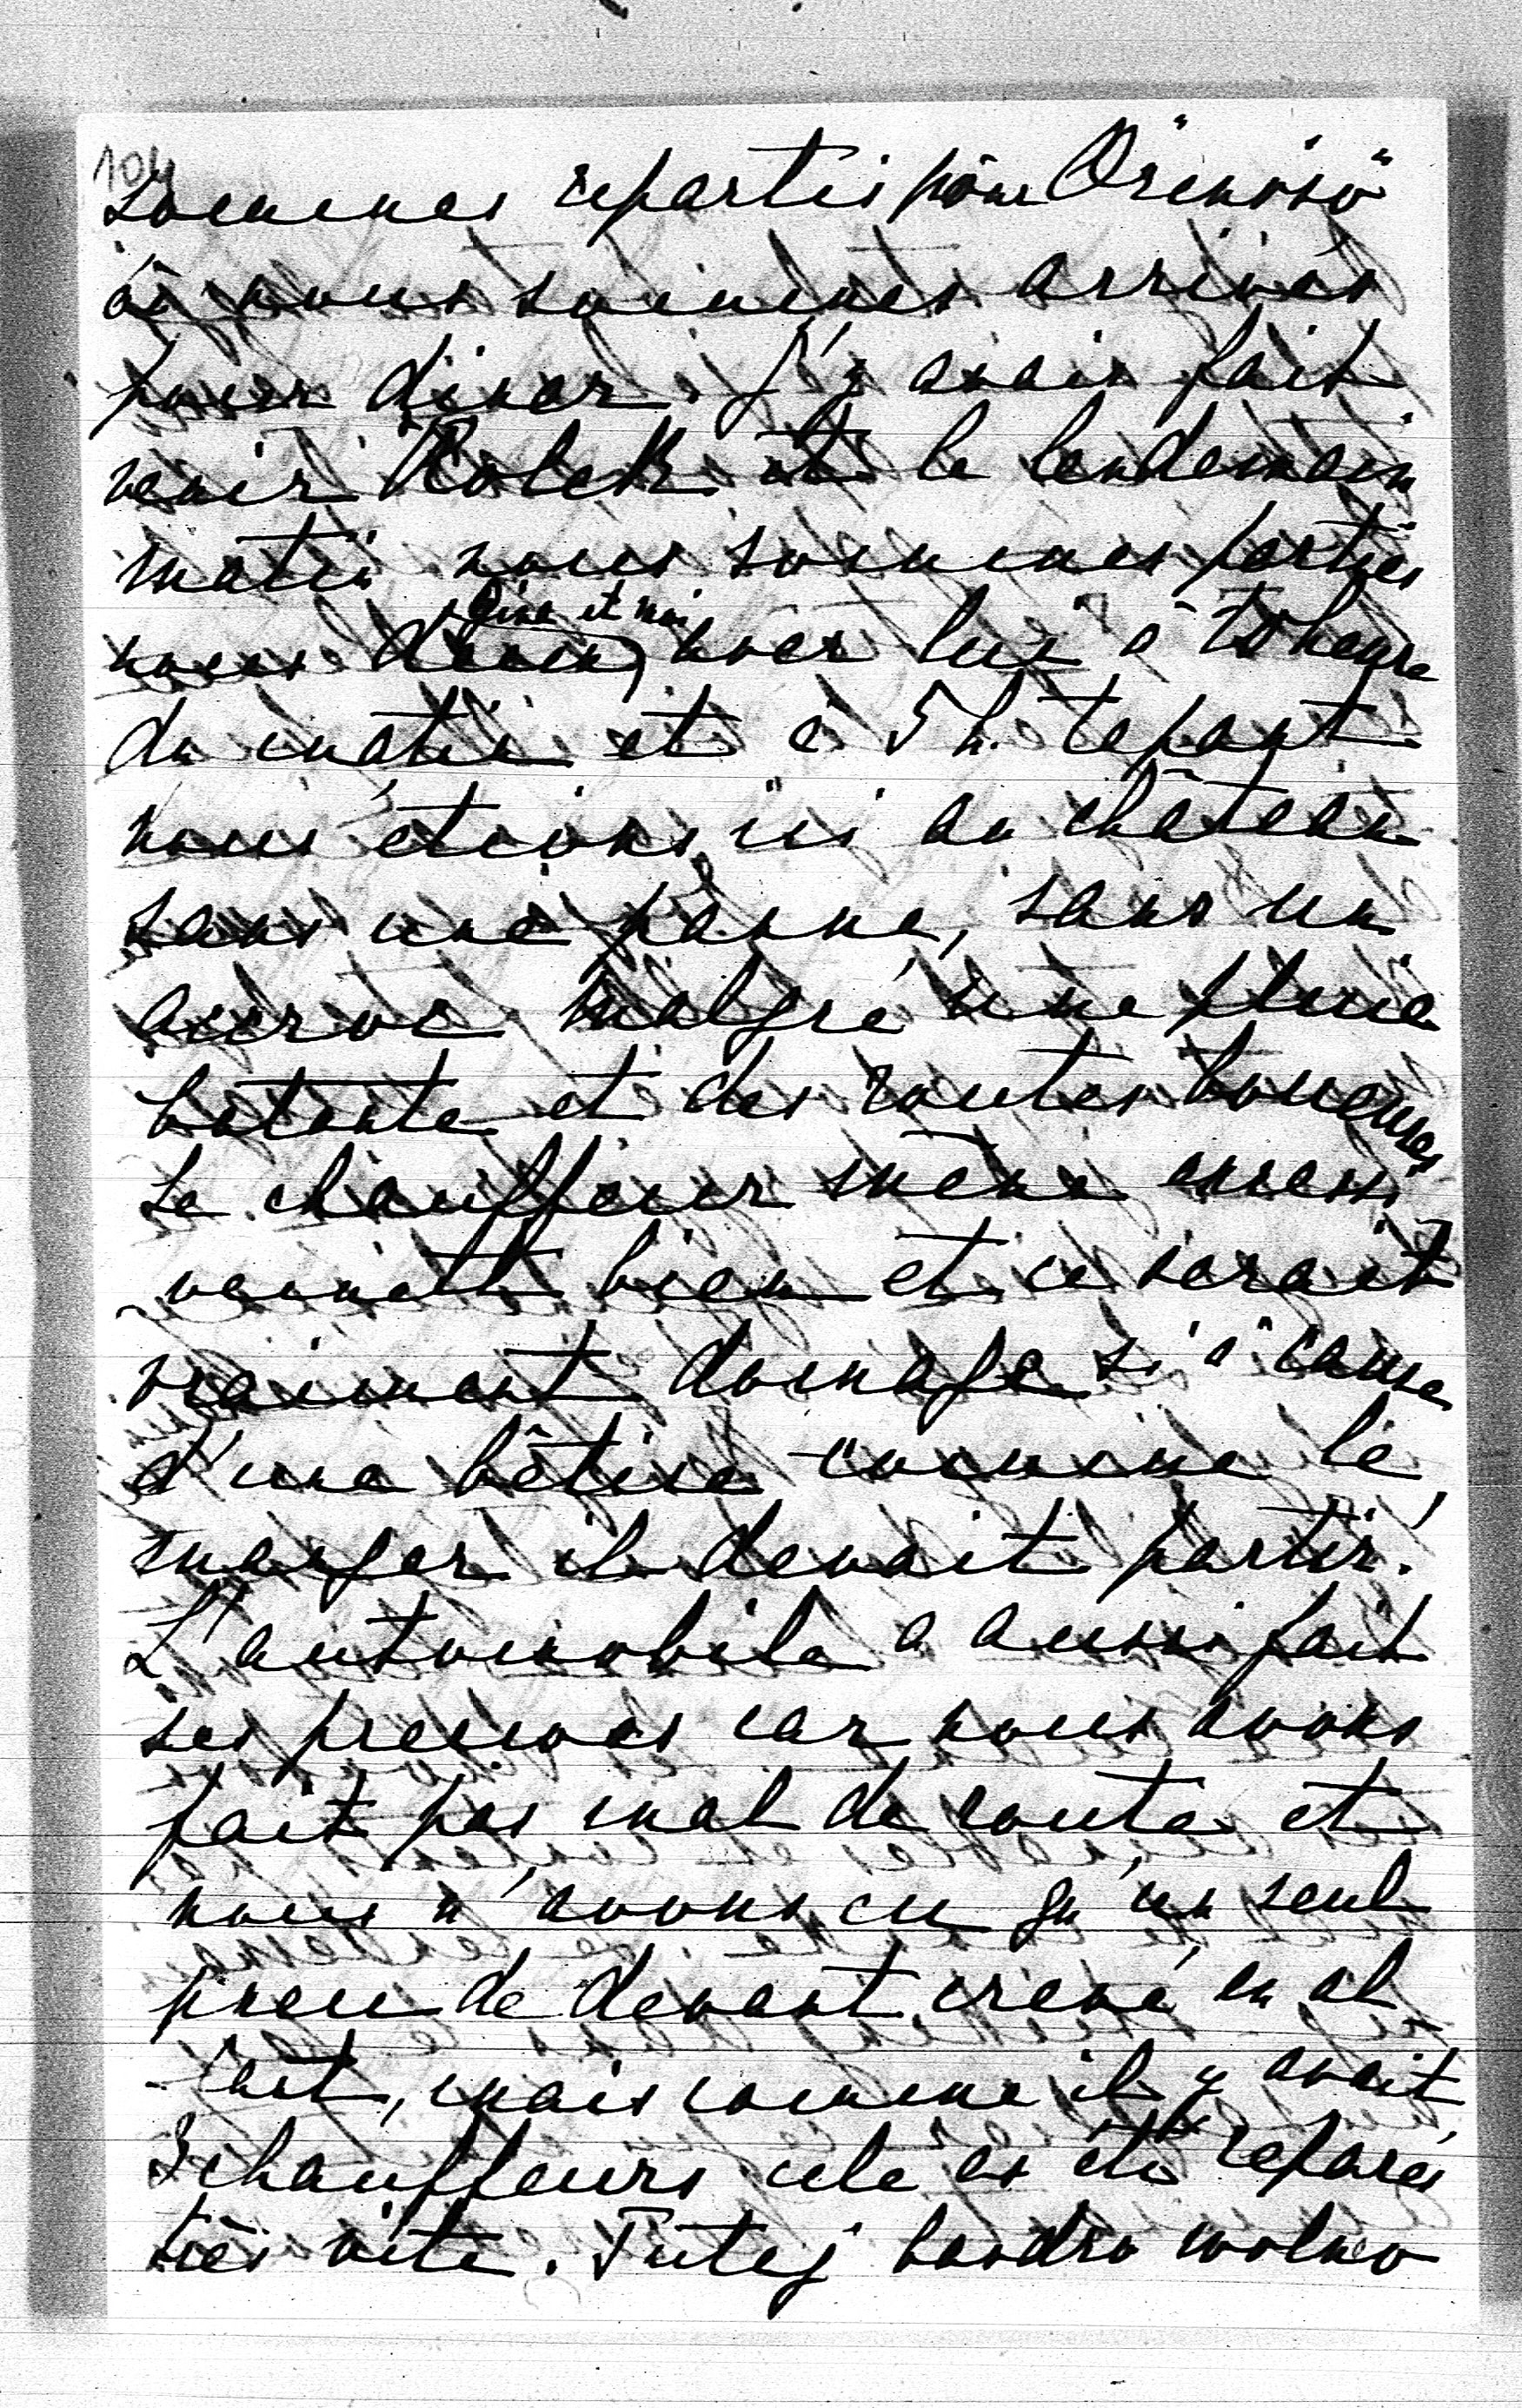 104
sommes repartis pour Örensö
où nous sommes arrivés
pour diner. J'y avais fait
venir Rolek et le lendemain
matin nous sommes parties
nous deux, et moi avec lui à 10 heure
du matin et à 5 h. tapant
nous étions ici au château
sans une panne, sans un
accroc malgré une pluie
batante et des routes boueuses
Le chauffeur mène excessi
vement bien et ce serait
vraiment domage si à cause
d'une bêtise comme le
manger il devait partir.
L'automobile a aussi fait
ses preuves car nous avons
fait pas mal de route et
nous n'avons eu qu'un seul
pneu de devant crevé en al
lant, mais comme il y avait
2 chauffeurs cela a été reparé
très vite. Tutej bardzo wolno